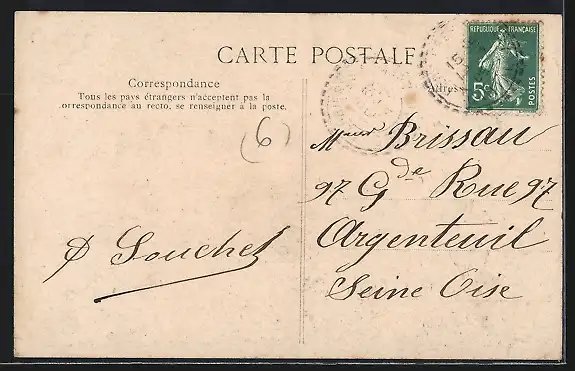 CARTE POSTALE
RÉPUBLIQUE FRANÇAISE
5c
POSTES
Correspondance
Tous les pays étrangers n'acceptent pas la
correspondance au recto, se renseigner à la poste.
(6)
Brissau
97 Gde Rue 97
Argenteuil
Seine Oise
Souchet